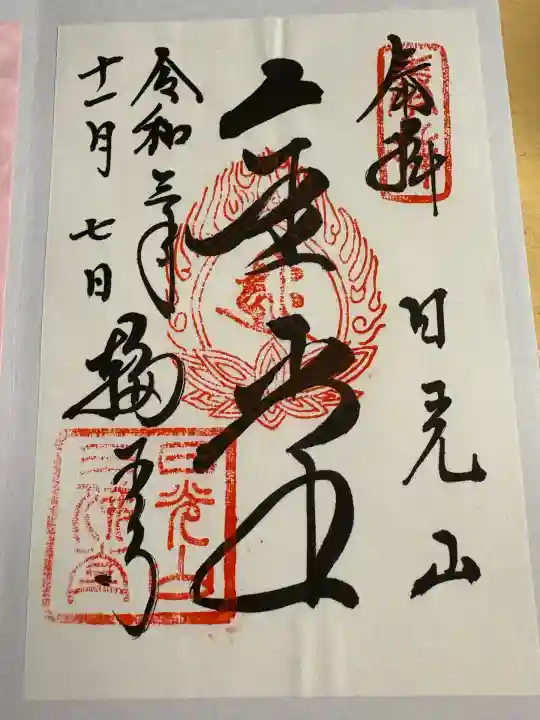 奉拝
日光山
金堂
令和三年
十一月七日
輪王寺
日光山
三佛堂